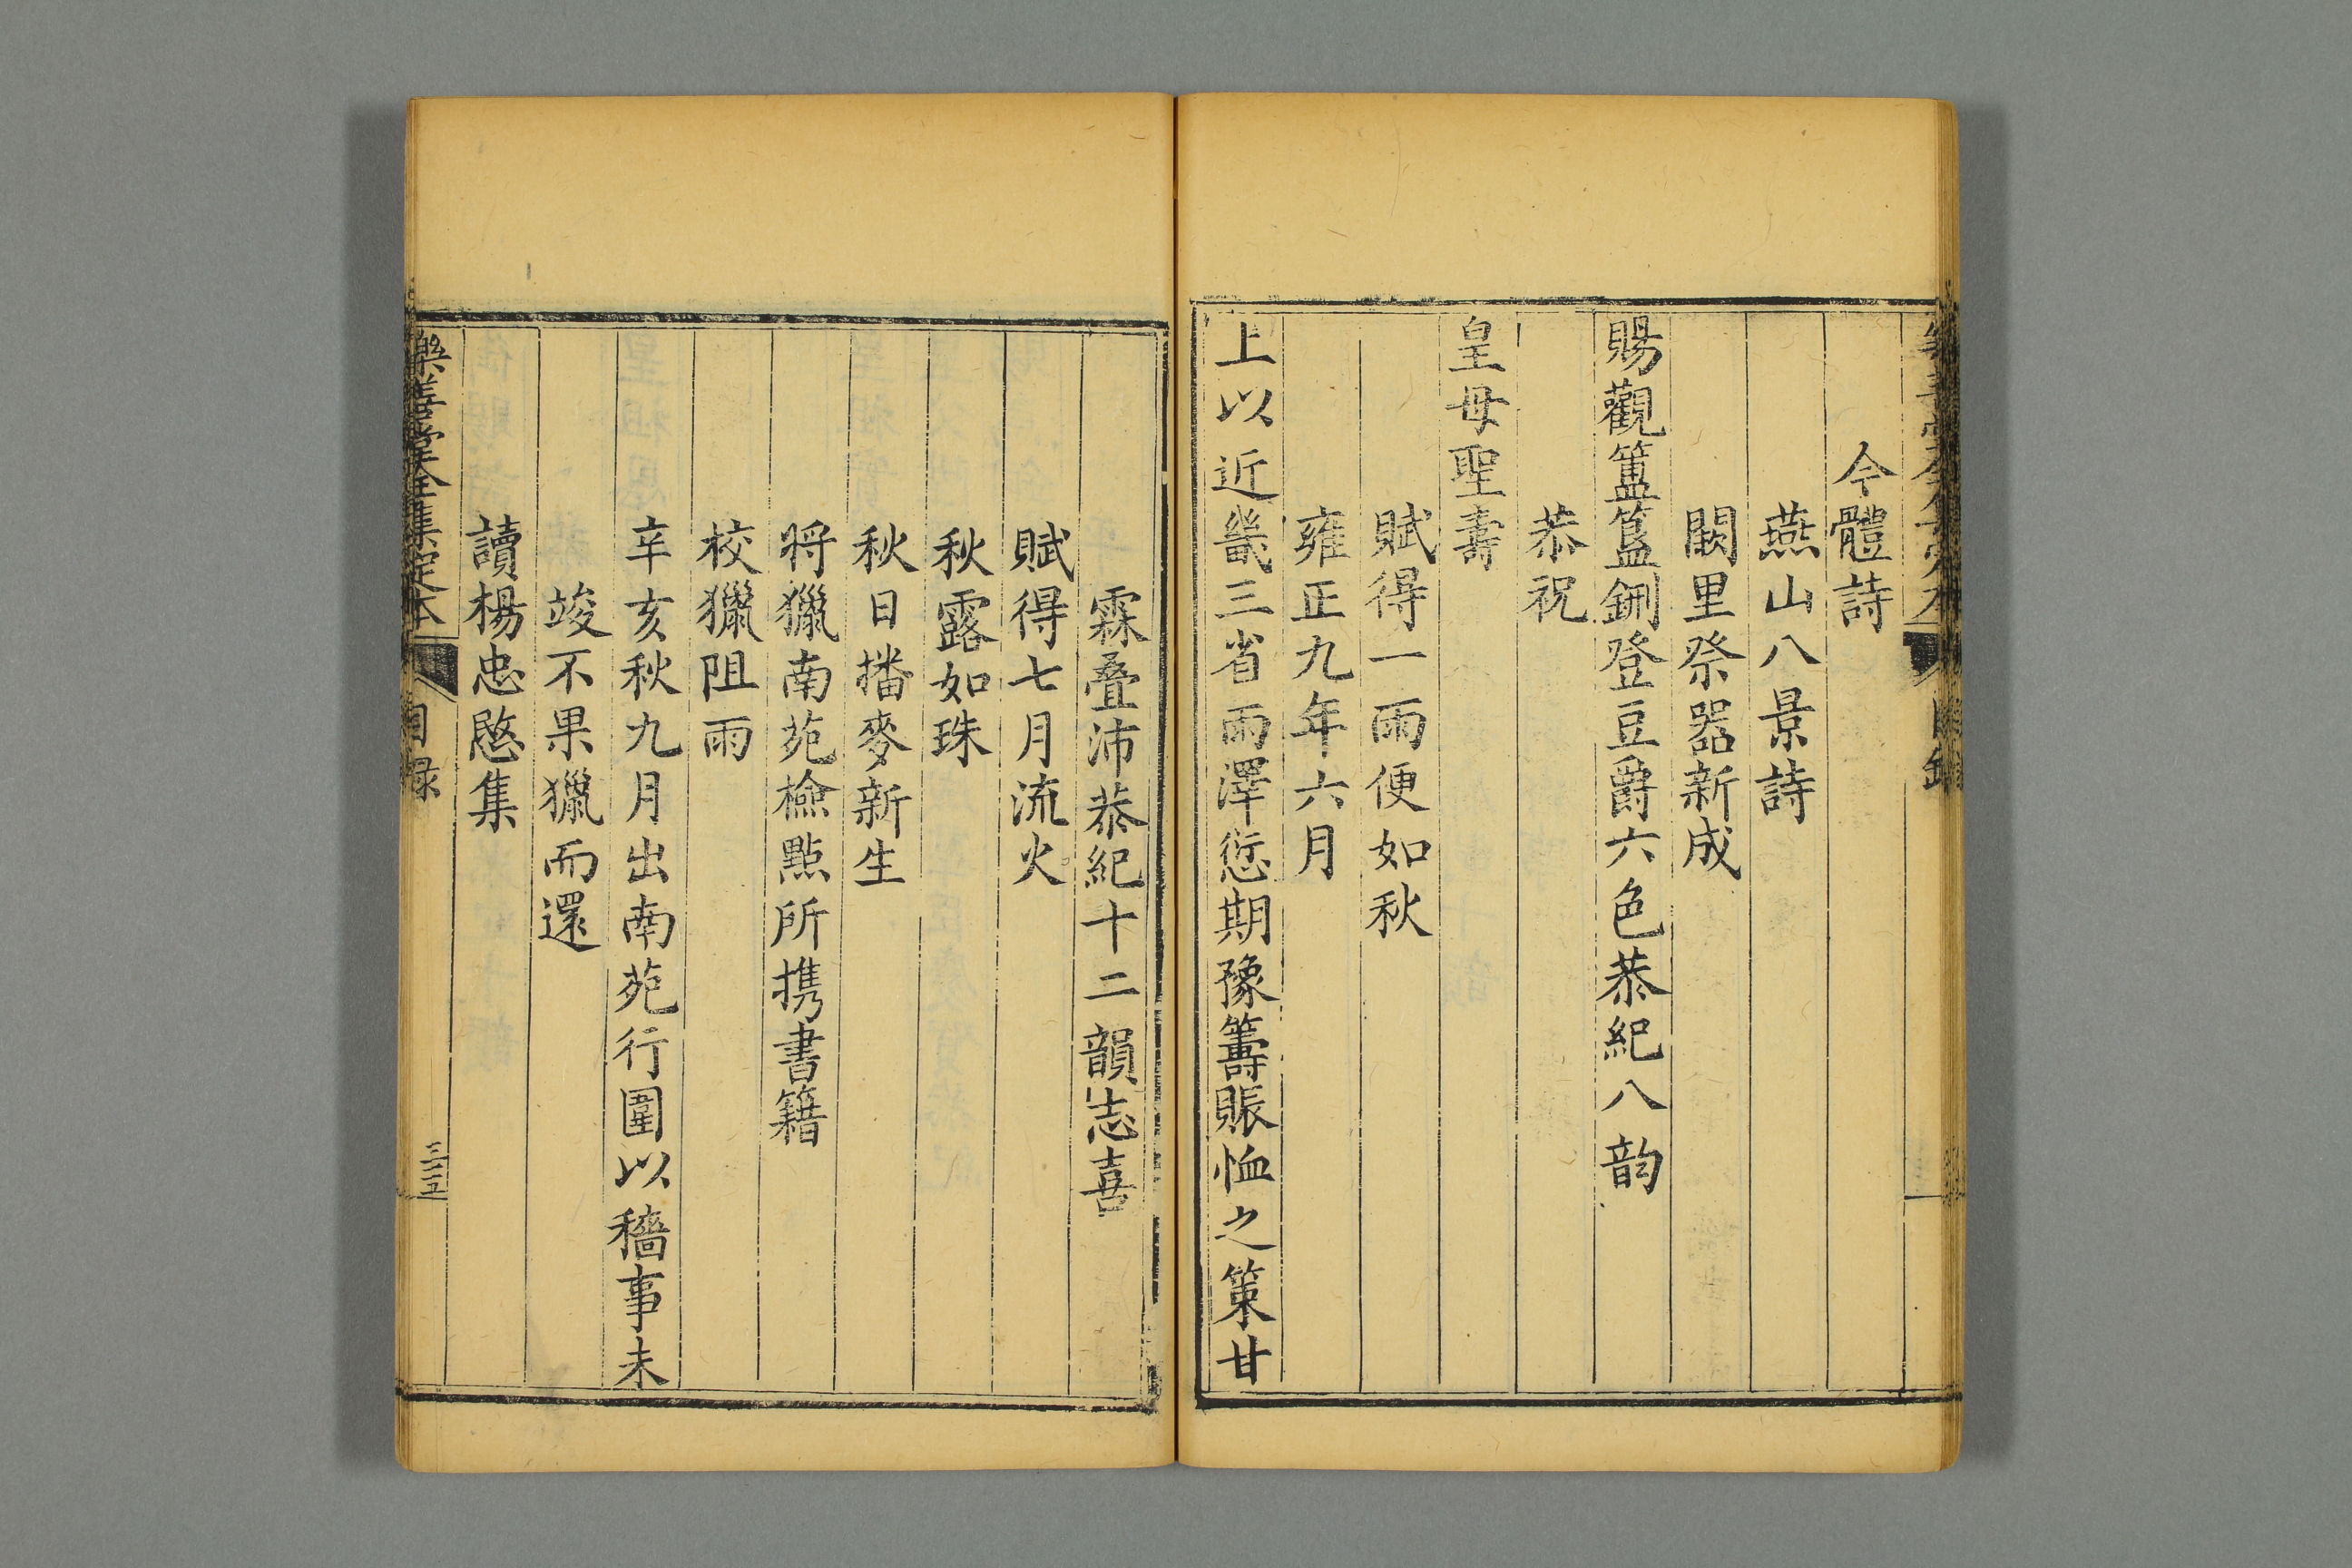 今體詩
燕山八景詩
闕里祭器新成
賜觀簠簋鉶登豆爵六色恭紀八韵
恭祝
皇母聖壽
賦得一雨便如秋
雍正九年六月
上以近畿三省雨澤愆期豫籌賬恤之策甘
霖疊沛恭紀十二韻志喜
賦得七月流火
秋露如珠
秋日播麥新生
将獵南苑檢點所携書籍
校獵阻雨
辛亥秋九月出南苑行圍以穡事未
竣不果獵而還
讀楊忠愍集
樂善堂全集定本
目錄